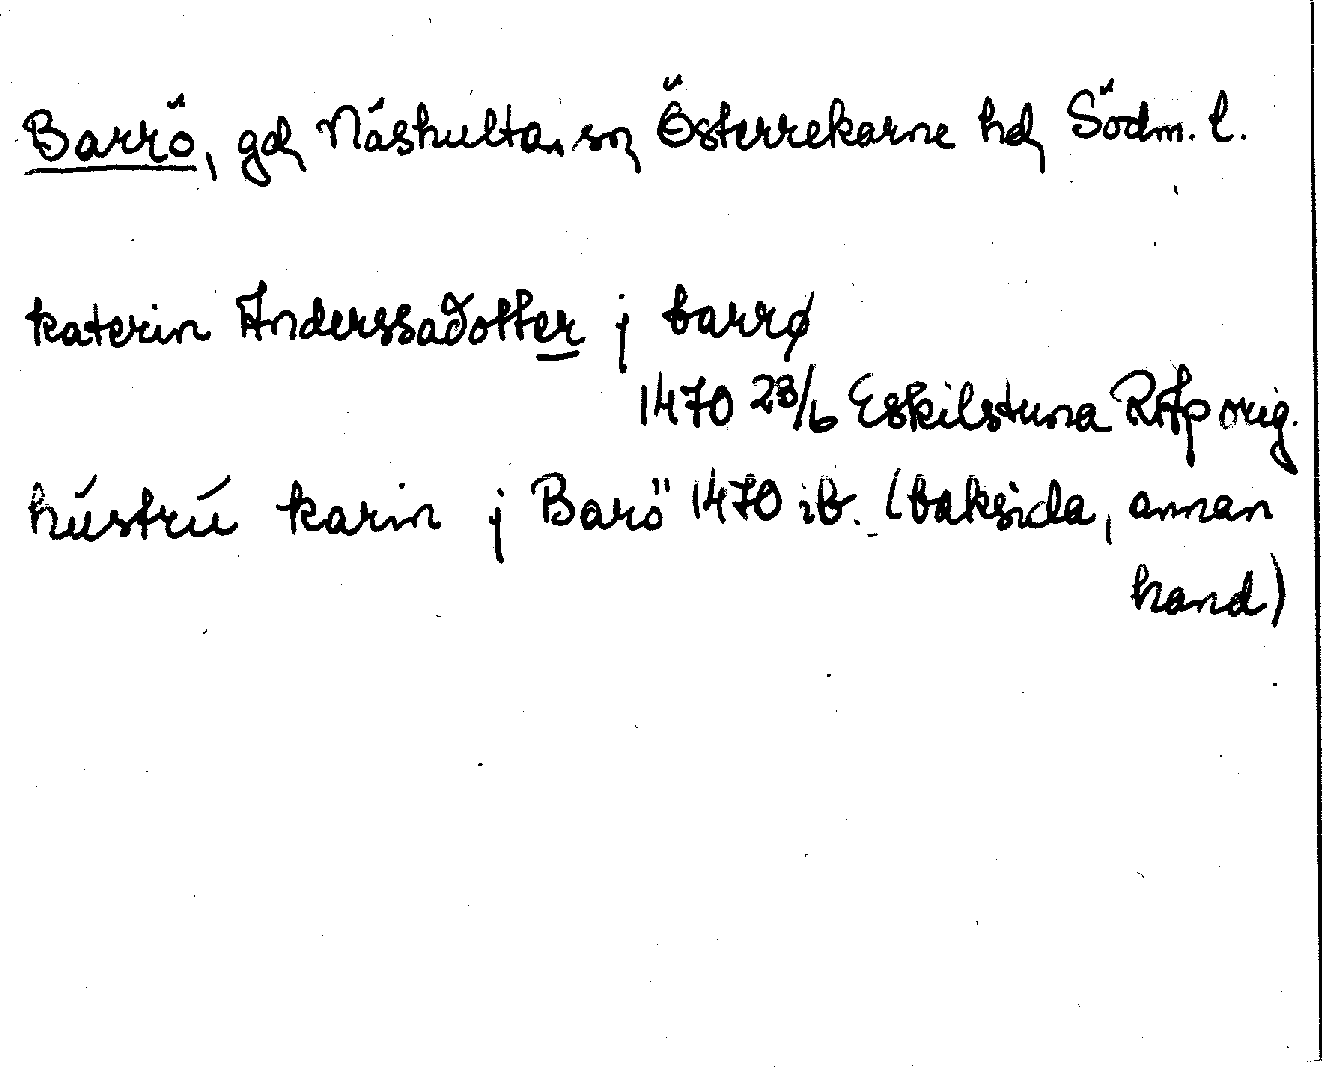 Barrö, gd, Näshulta sn, Österrekarne hd, Södm. l.
katerin Anderssadotter j barrø
1470 23/6 Eskilstuna RAp orig.
hústrú karin j Barö 1470 ib. (baksida, annan
hand)